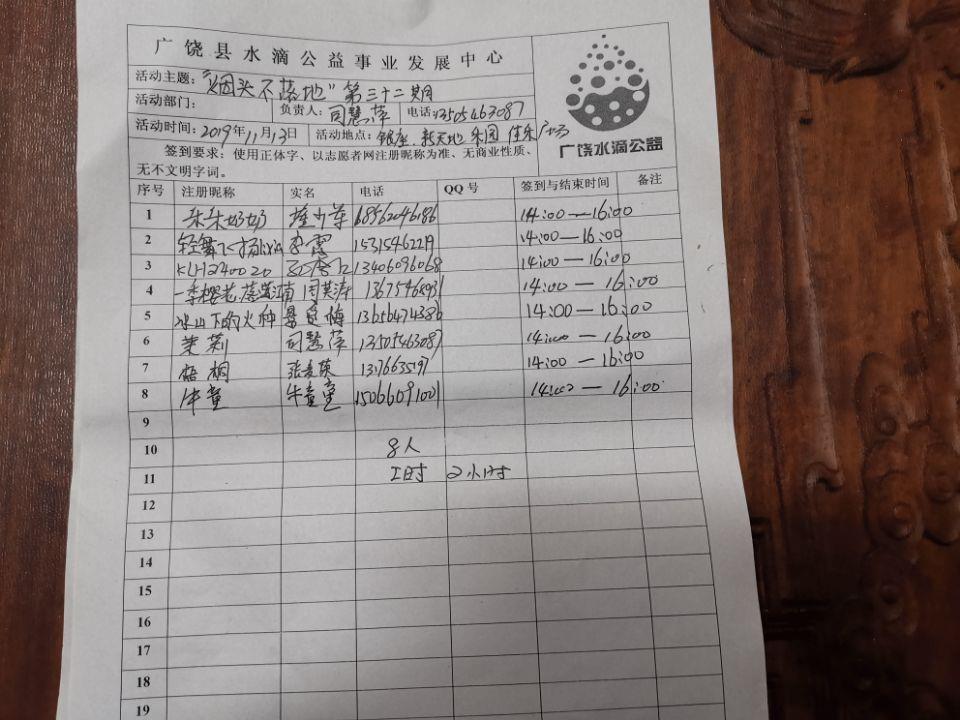 广饶县水滴公益事业发展中心
活动主题：“烟头不落地”第三十二期
活动部门： 负责人：司慧萍 电话：13505463087
活动时间：2019年11月13日 活动地点：银座.新天地 乐园 佳乐广场
签到要求：使用正体字、以志愿者网注册昵称为准、无商业性质、
无不文明字词。
广饶水滴公益
序号 注册昵称 实名 电话 QQ号 签到与结束时间 备注
1 朵朵奶奶 14:00—16:00
2 轻舞飞扬 李霞 15315462219 14:00—16:00
3 KLH240020 13406096068 14:00—16:00
4 14:00—16:00
5 冰山下的火种 13656474386 14:00—16:00
6 茉莉 司慧萍 13505463087 14:00—16:00
7 梧桐 14:00—16:00
8 牛童童 15066091001 14:00—16:00
9
10 8人
11 工时 2小时
12
13
14
15
16
17
18
19